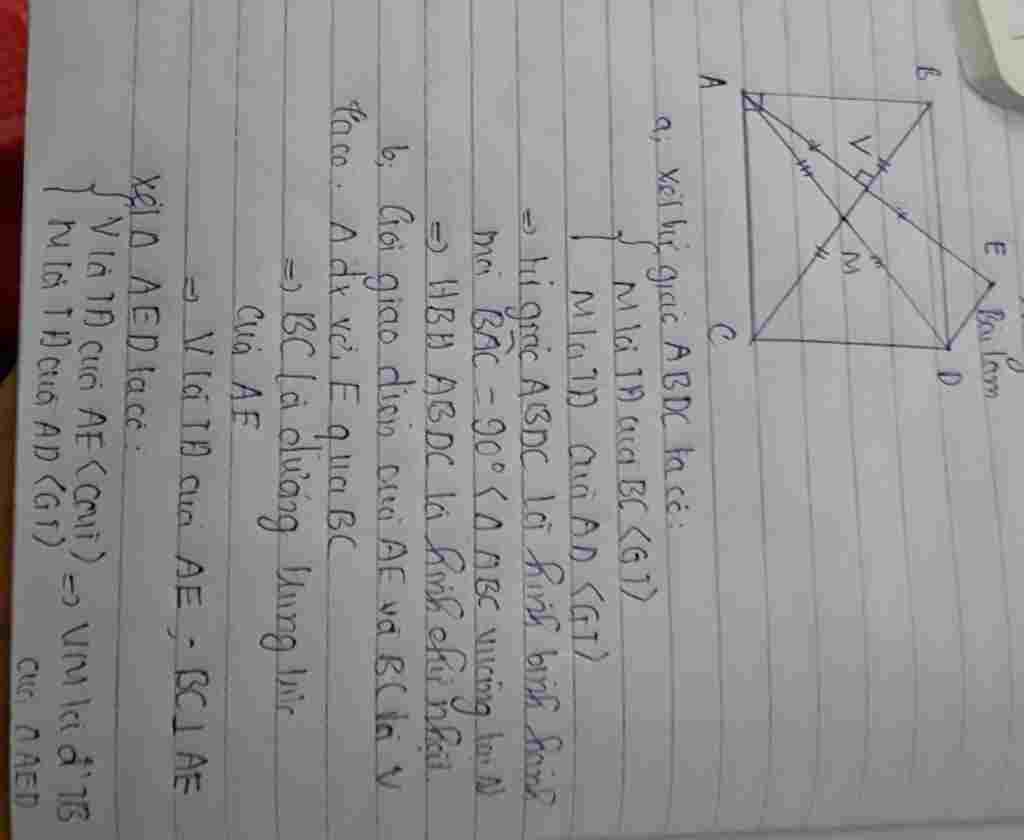 Bài làm
A
B
C
D
E
V
M
a, xét tứ giác ABDC ta có:
M là TĐ của BC <GT>
M là TĐ của AD <GT>
=> tứ giác ABDC là hình bình hành
mà BAC = 90° < Δ ABC vuông tại A
=> HBH ABDC là hình chữ nhật.
b, Gọi giao điểm của AE và BC là V
ta có: A đx với E qua BC
=> BC là đường trung trực
của AE
=> V là TĐ của AE; BC ⊥ AE
xét Δ AED ta có:
V là TĐ của AE <cmt> => VM là đTB
M là TĐ của AD <GT> của Δ AED